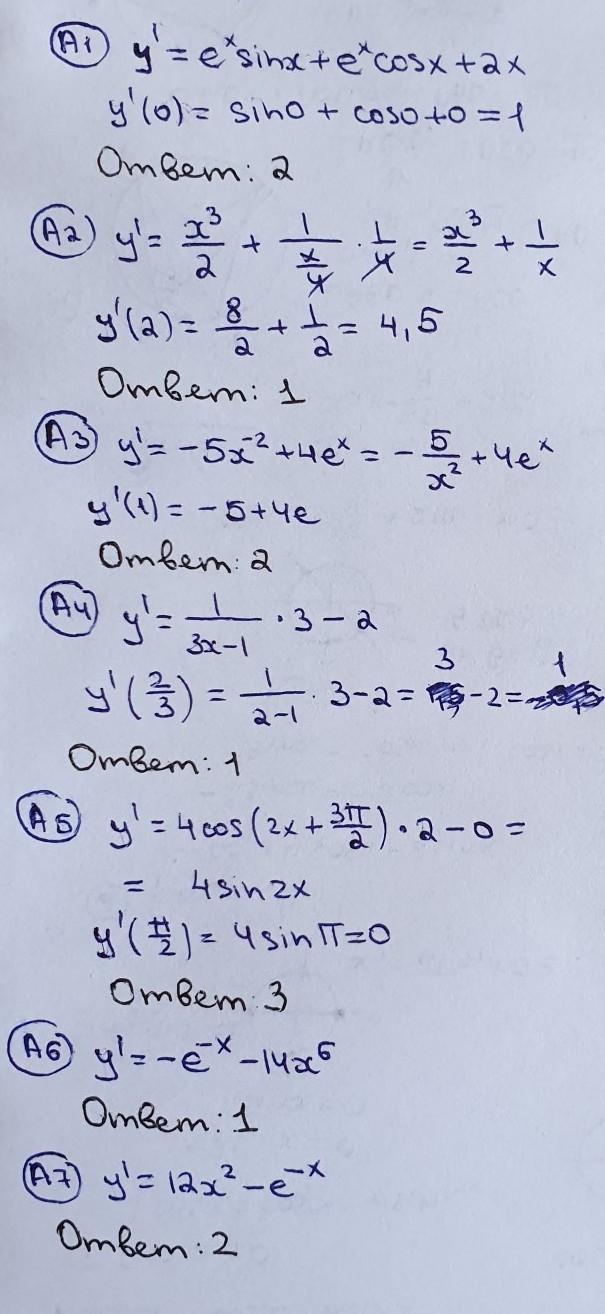 A1 y' = e^x sinx + e^x cosx + 2x
y'(0) = sin0 + cos0 + 0 = 1
Ответ: 2
A2) y' = x^3/2 + 1/(x/4) · 1/4 = x^3/2 + 1/x
y'(2) = 8/2 + 1/2 = 4,5
Ответ: 1
A3 y' = -5x^-2 + 4e^x = -5/x^2 + 4e^x
y'(1) = -5 + 4e
Ответ: 2
A4 y' = 1/(3x-1) · 3 - 2
y'(2/3) = 1/(2-1) · 3 - 2 = 3 - 2 = 1
Ответ: 1
A5 y' = 4cos(2x + 3π/2) · 2 - 0 =
= 4sin2x
y'(π/2) = 4sinπ = 0
Ответ: 3
A6 y' = -e^-x - 14x^6
Ответ: 1
A7 y' = 12x^2 - e^-x
Ответ: 2